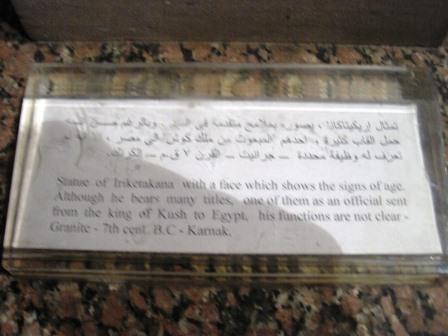 تمثال إريكيتاكانا ، يصوره بملامح متقدمة في السن ، وبالرغم من
حمل القاب كثيرة ، أحدهم المبعوث من ملك كوش إلى مصر ،
تعرف له وظيفة محددة – جرانيت – القرن ٧ ق.م – الكرنك.
Statue of Iriketakana with a face which shows the signs of age.
Although he bears many titles, one of them as an official sent
from the king of Kush to Egypt, his functions are not clear -
Granite - 7th cent. B.C - Karnak.